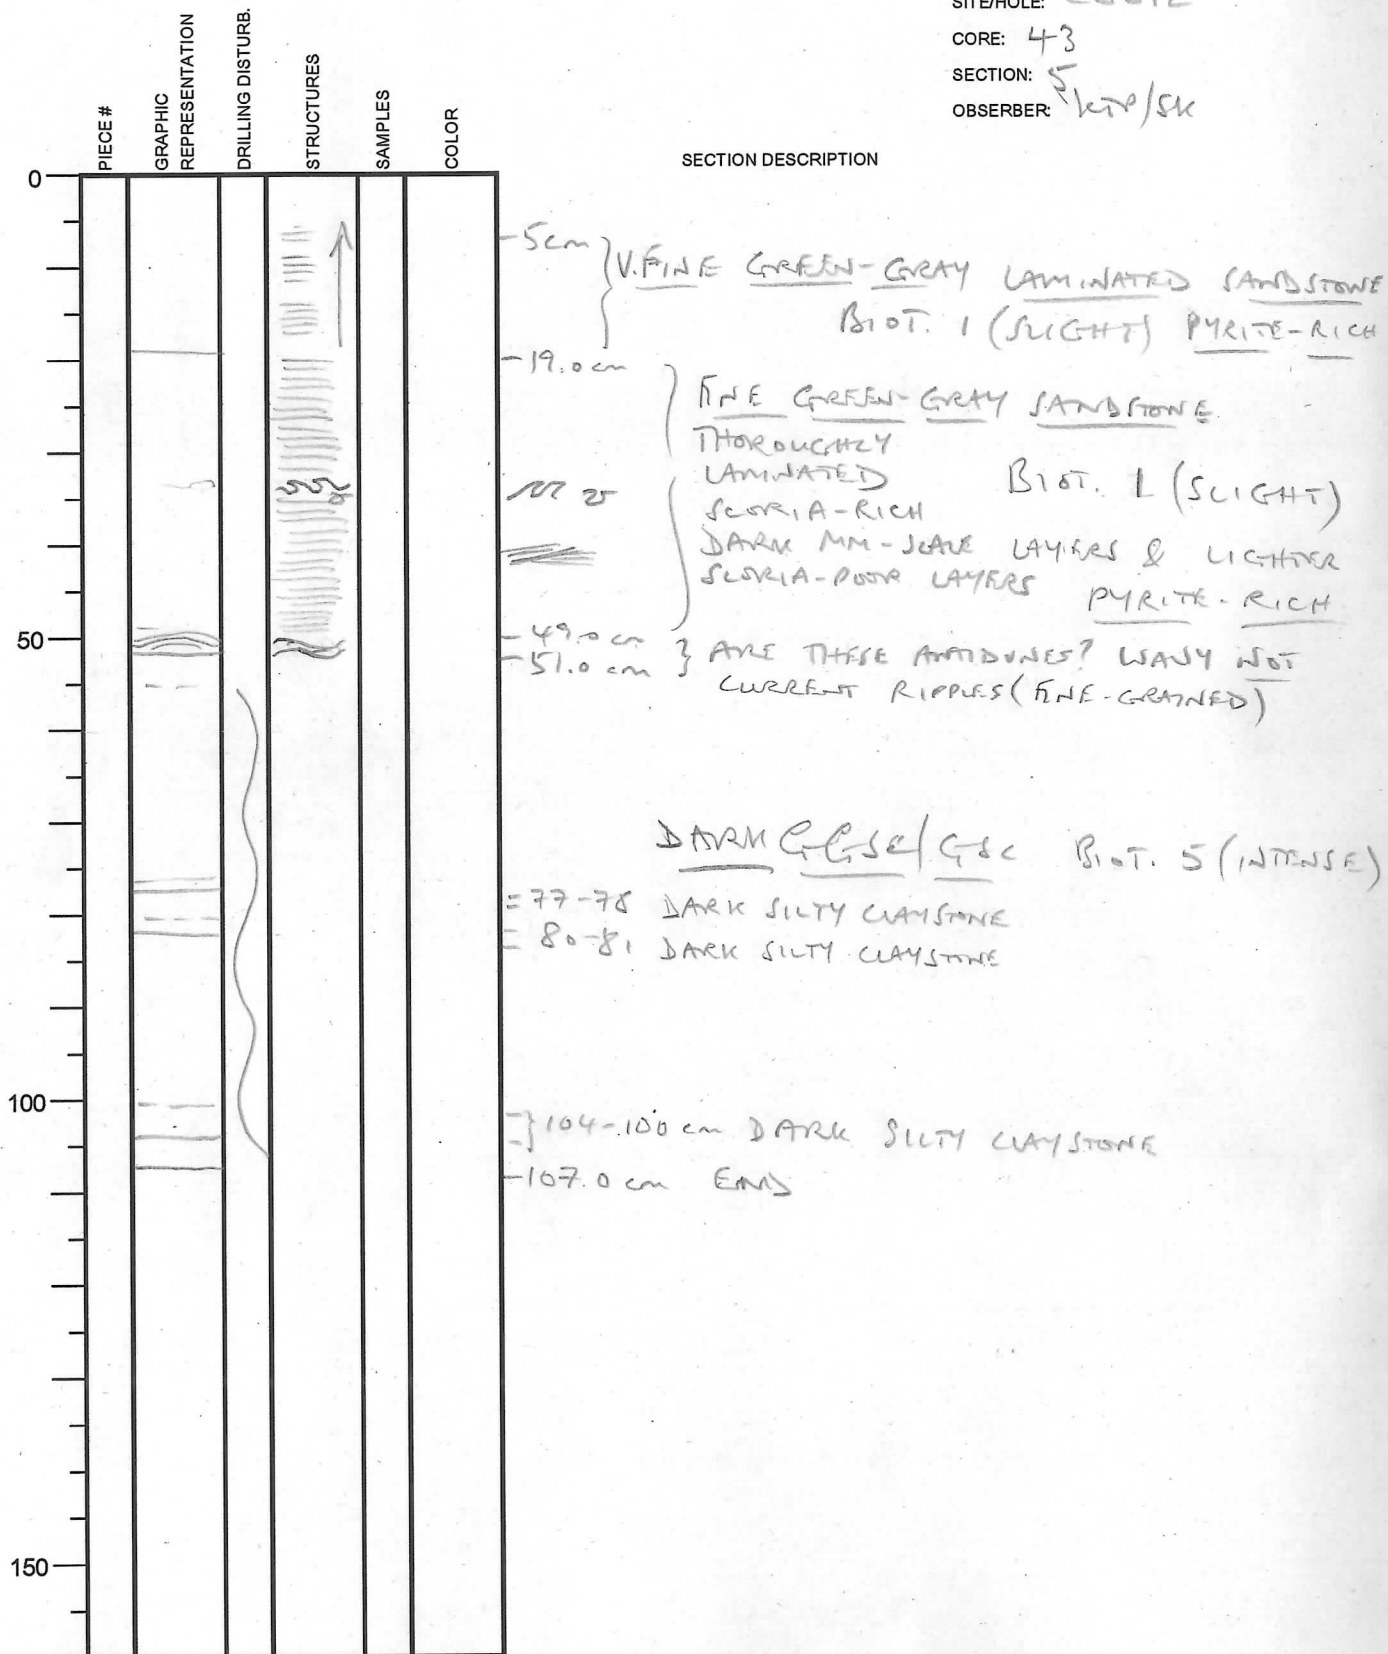 SITE/HOLE:
CORE: 43
SECTION: 5
OBSERBER: KTP/SK
PIECE #
GRAPHIC
REPRESENTATION
DRILLING DISTURB.
STRUCTURES
SAMPLES
COLOR
SECTION DESCRIPTION
0
50
100
150
-5cm
V.FINE GREEN-GRAY LAMINATED SANDSTONE
BIOT. 1 (SLIGHT) PYRITE-RICH
-19.0cm
FINE GREEN-GRAY SANDSTONE.
THOROUGHLY
LAMINATED BIOT. 1 (SLIGHT)
SCORIA-RICH
DARK MM-SCALE LAYERS & LIGHTER
SCORIA-POOR LAYERS PYRITE-RICH
-49.0 cm
-51.0 cm } ARE THESE ANTIDUNES? WAVY NOT
CURRENT RIPPLES (FINE-GRAINED)
DARK GGSC/GSC BIOT. 5 (INTENSE)
=77-78 DARK SILTY CLAYSTONE
=80-81 DARK SILTY CLAYSTONE
104-100 cm DARK SILTY CLAYSTONE
-107.0 cm END